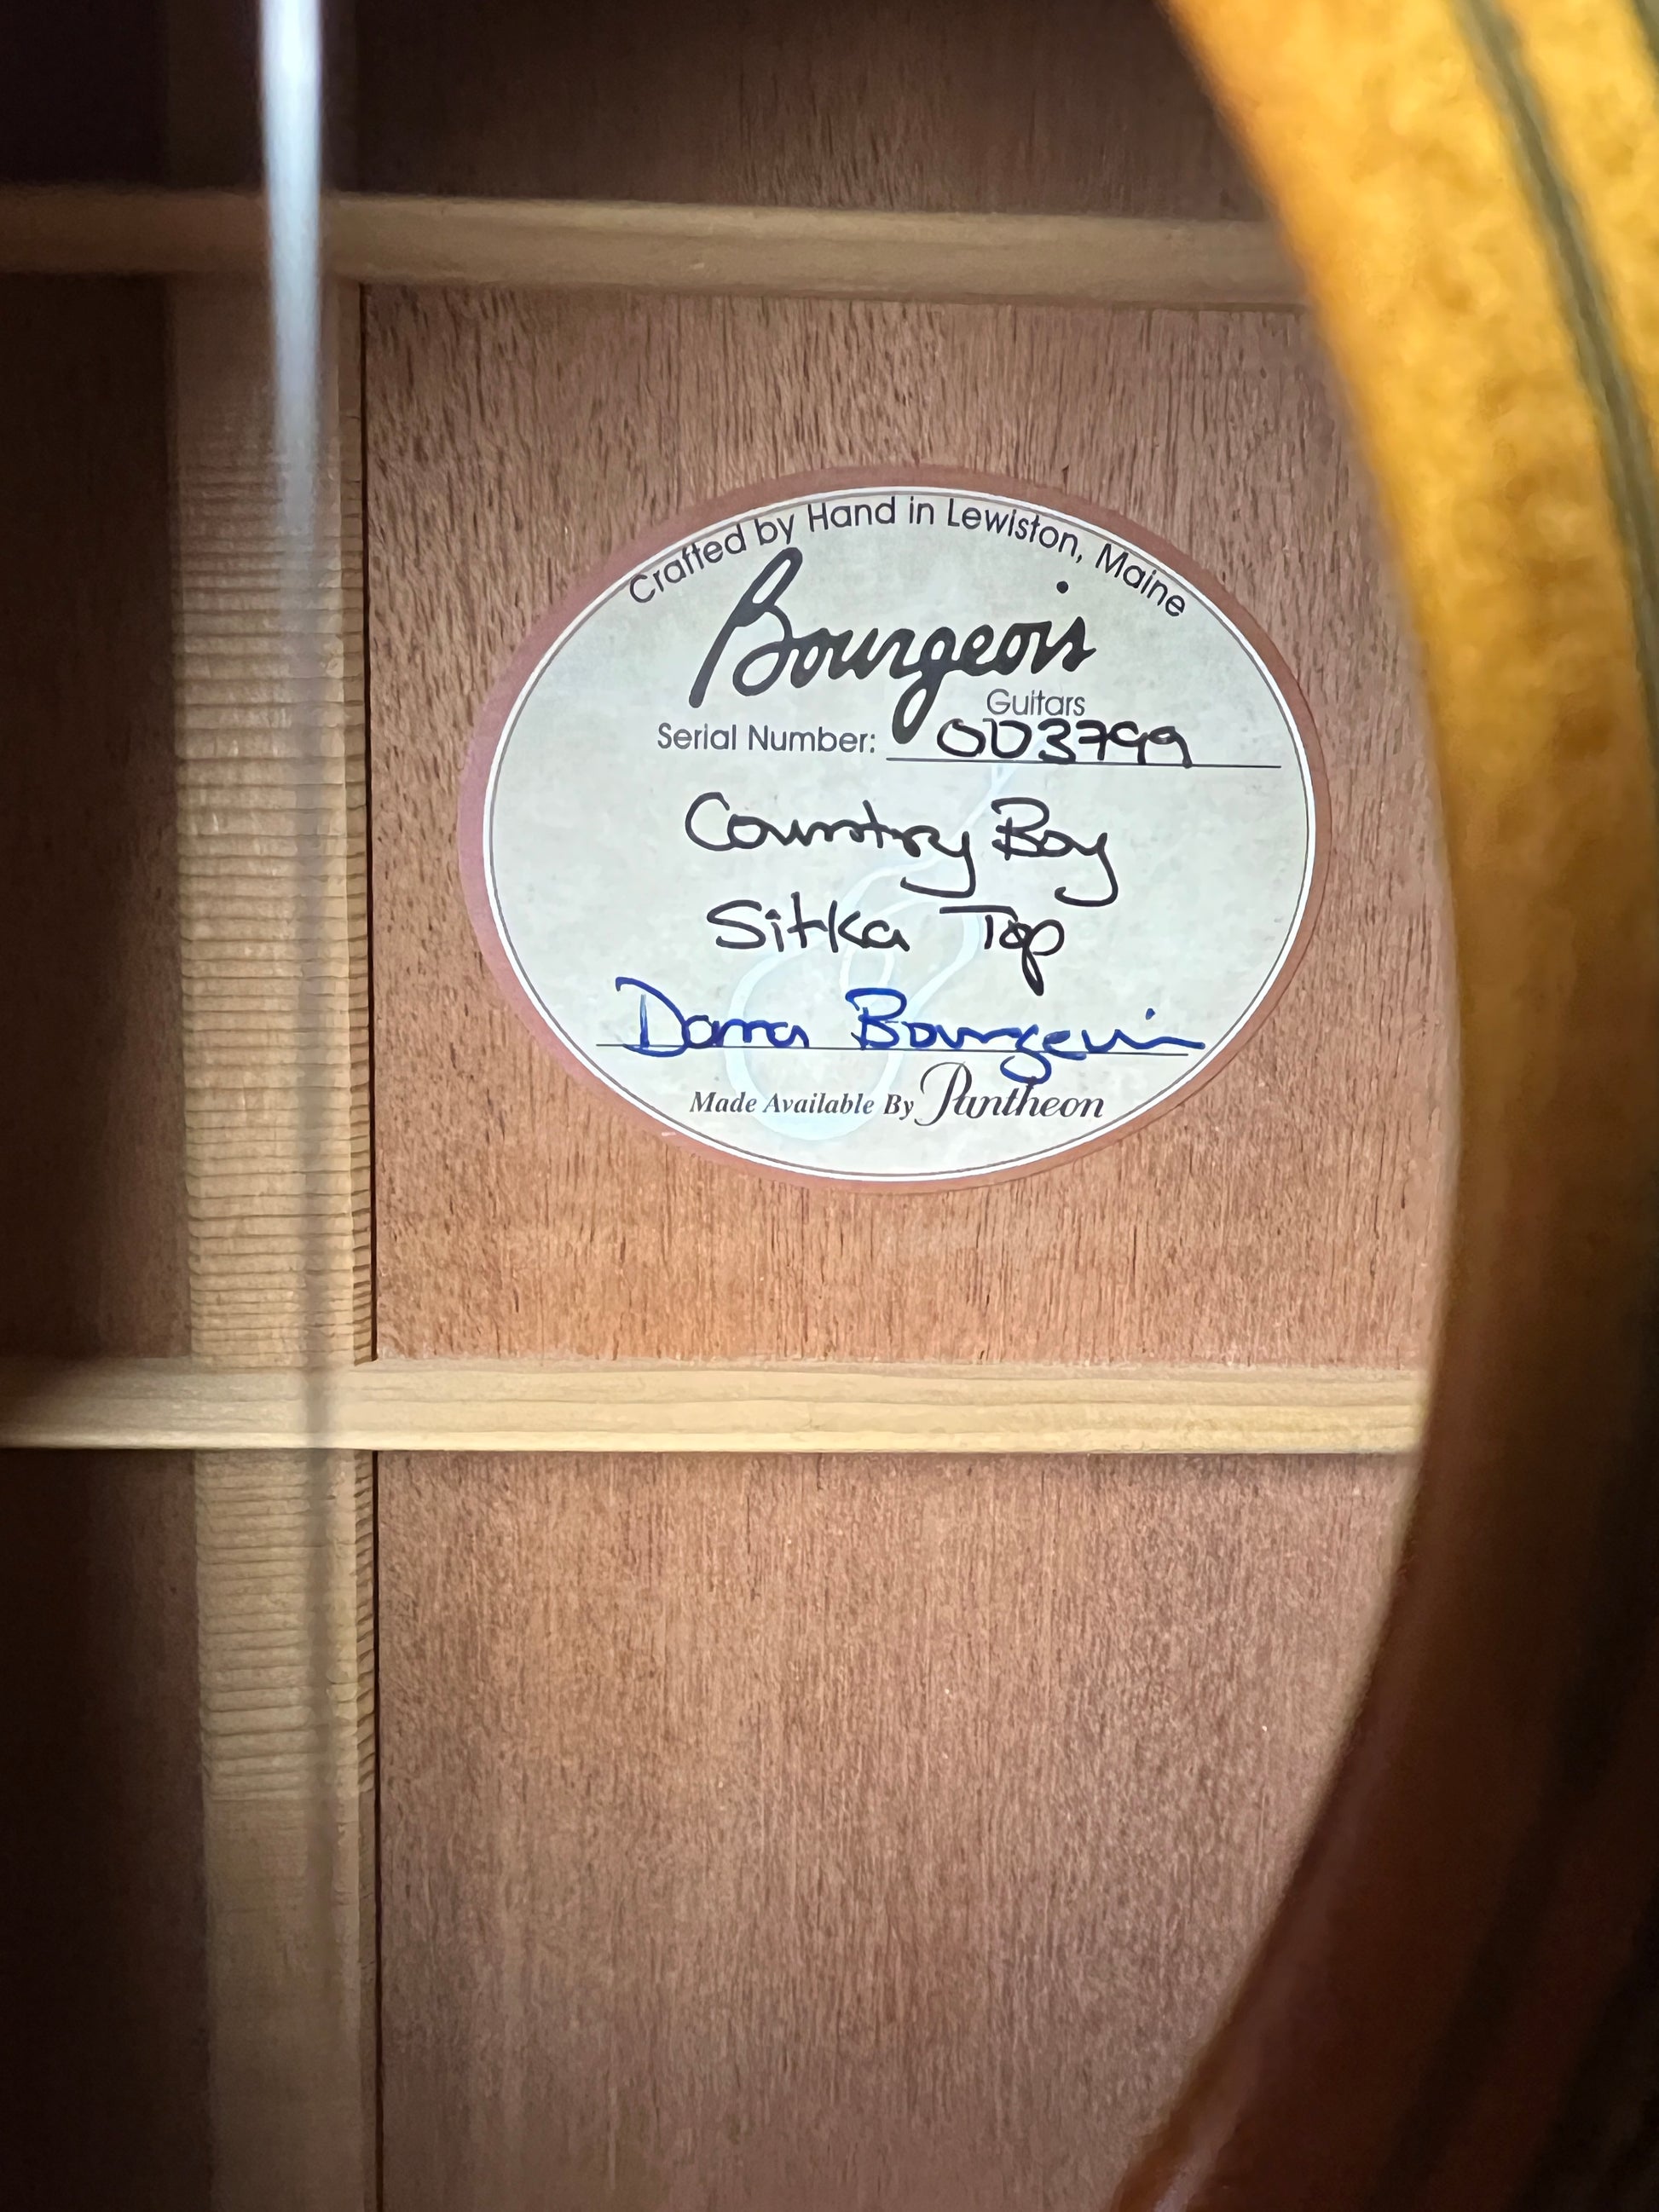 Crafted by Hand in Lewiston, Maine
Bourgeois
Guitars
Serial Number: 003799
Country Boy
Sitka Top
Dana Bourgeois
Made Available By Pantheon